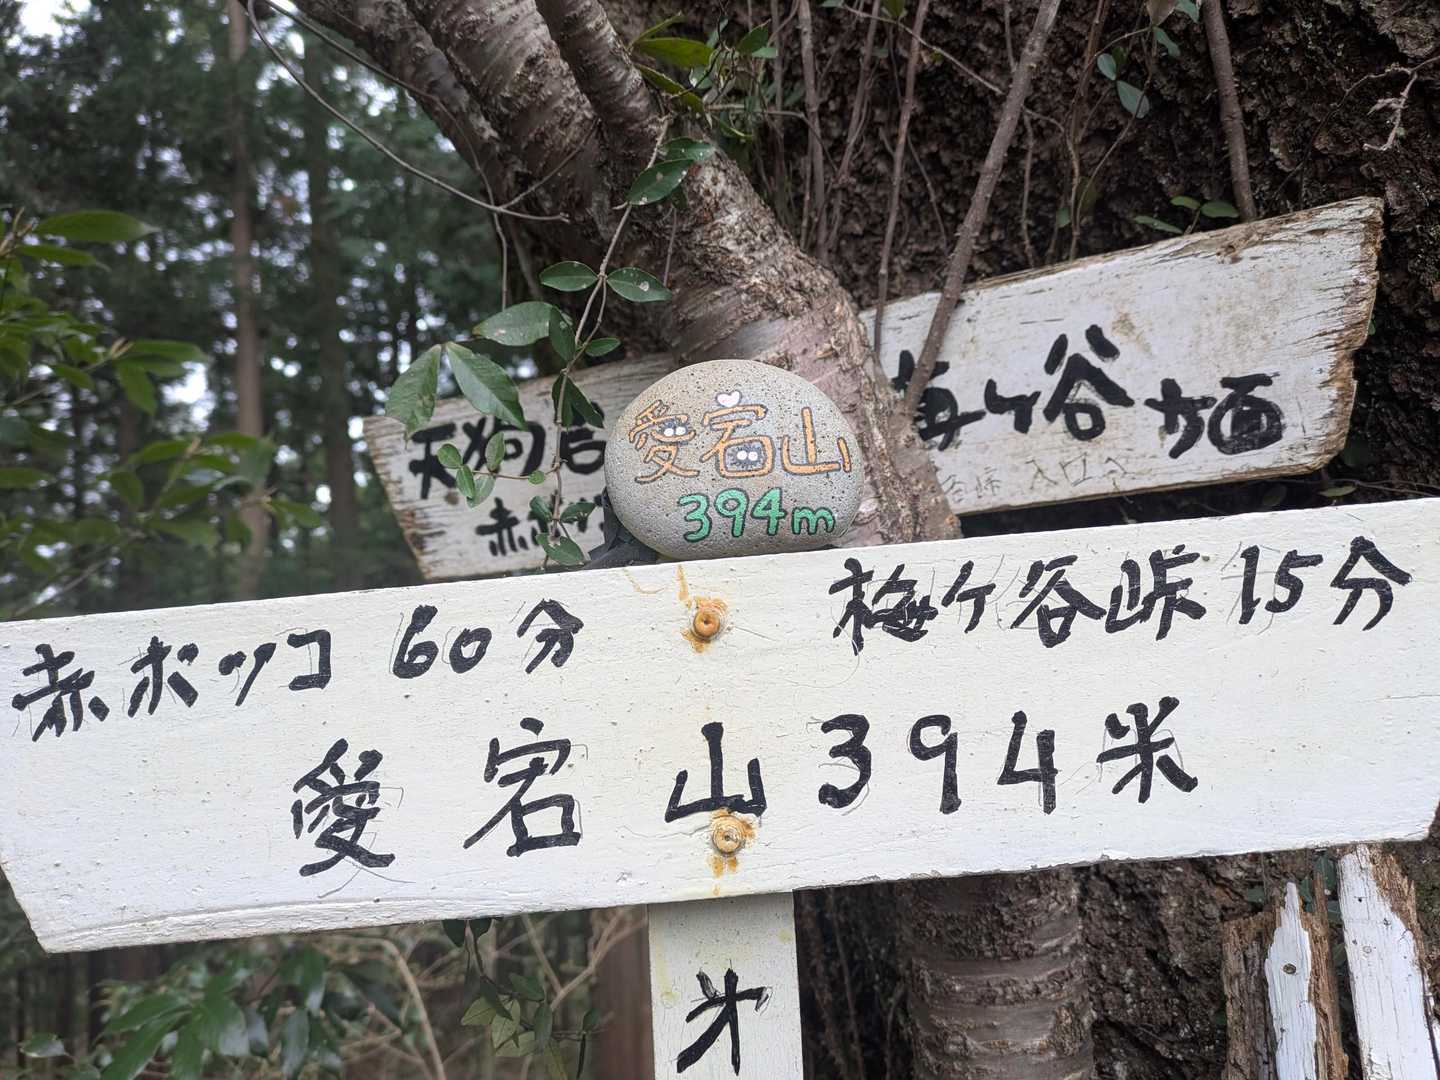 天狗岩
梅ヶ谷峠
赤ボッ
入口へ
愛宕山
394m
赤ボッコ 60分
梅ケ谷峠 15分
愛宕山 394米